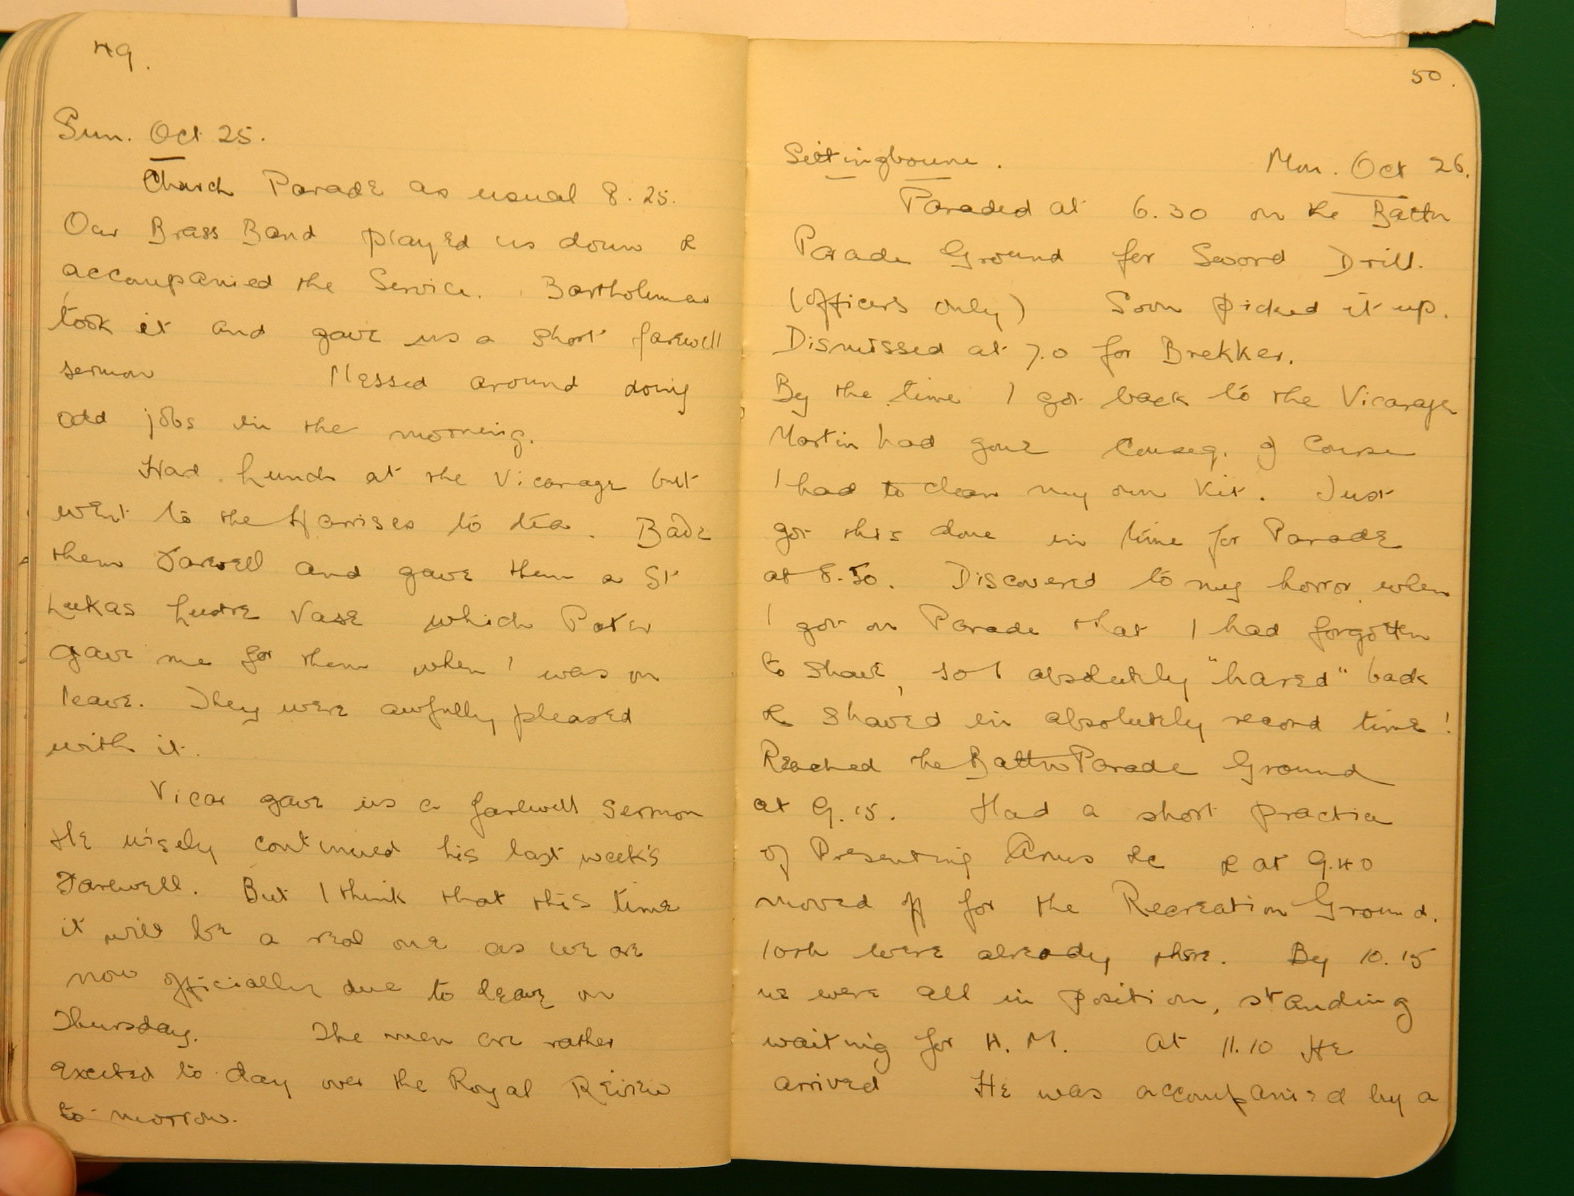 49.
Sun. Oct 25.
Church Parade as usual 8.25.
Our Brass Band played us down &
accompanied the Service. Bartholomew
took it and gave us a short farewell
sermon Messed around doing
odd jobs in the morning.
Had Lunch at the Vicarage but
went to the Harrises to tea. Bade
them Farwell and gave them a St
Lukas Lustre Vase which Pater
gave me for them when I was on
leave. They were awfully pleased
with it.
Vicar gave us a farewell sermon
He wisely continued his last week's
Farewell. But I think that this time
it will be a real one as we are
now officially due to leave on
Thursday. The men are rather
excited to day over the Royal Review
to-morrow.
50.
Sittingbourne. Mon. Oct 26.
Paraded at 6.30 on the Battn
Parade Ground for Sword Drill.
(officers only) Soon picked it up.
Dismissed at 7.0 for Brekker.
By the time I got back to the Vicarage
Martin had gone Conseq. of Course
I had to clean my own Kit. Just
got this done in time for Parade
at 8.50. Discovered to my horror when
I got on Parade that I had forgotten
to shave, so I absolutely "hared" back
& shaved in absolutely record time!
Reached the Battn Parade Ground
at 9.15. Had a short practice
of Presenting Arms &c & at 9.40
moved off for the Recreation Ground.
10th were already there. By 10.15
we were all in position, standing
waiting for H.M. At 11.10 He
arrived He was accompanied by a